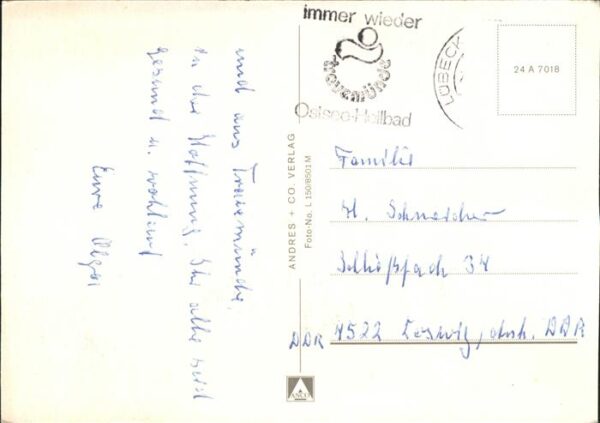 immer wieder
travemünde
Ostsee-Heilbad
LÜBECK
24 A 7018
ANDRES + CO. VERLAG
Foto-No. L 150/8501 M
ANCO
Familie
H. Schneider
Schließfach 34
DDR 4522 Coswig, Anh. DDR
und aus Travemünde.
In der Hoffnung, Ihr alle seid
gesund u. wohlauf
Eure Olga